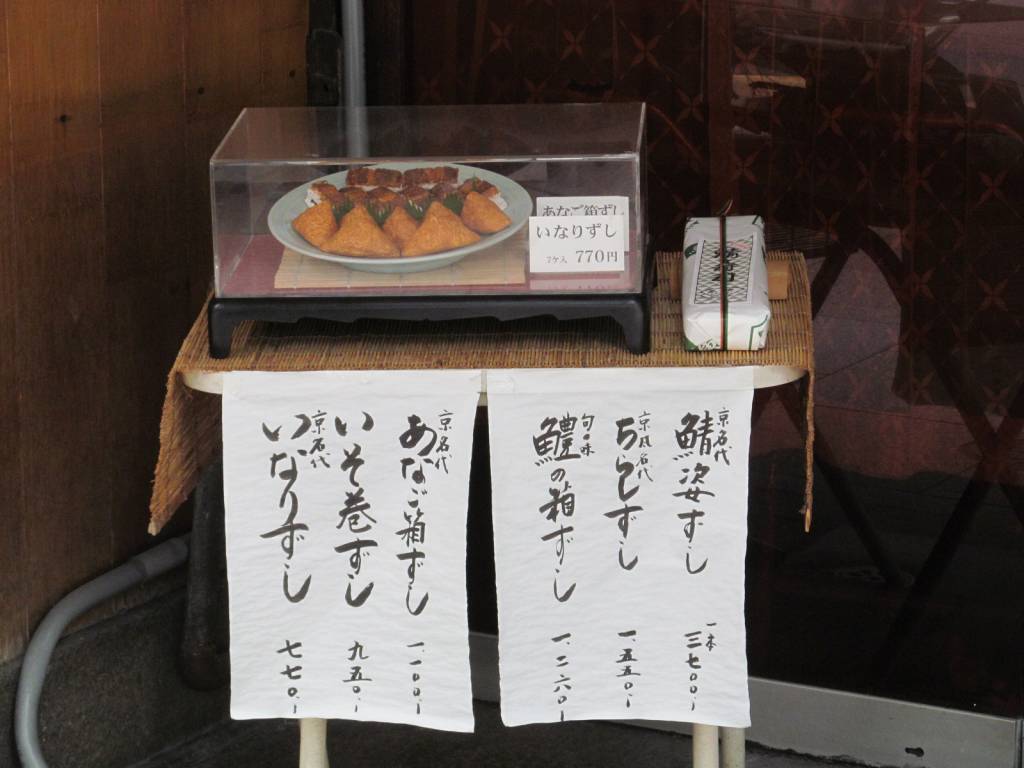 あなご箱ずし
いなりずし
7ケ入 770円
京名代
鯖姿ずし
一本
三七〇〇、
京風名代
ちらしずし
一、五五〇、
旬の味
鱧の箱ずし
一、二六〇、
京名代
あなご箱ずし
一、一〇〇、
いそ巻ずし
九五〇、
京名代
いなりずし
七七〇、